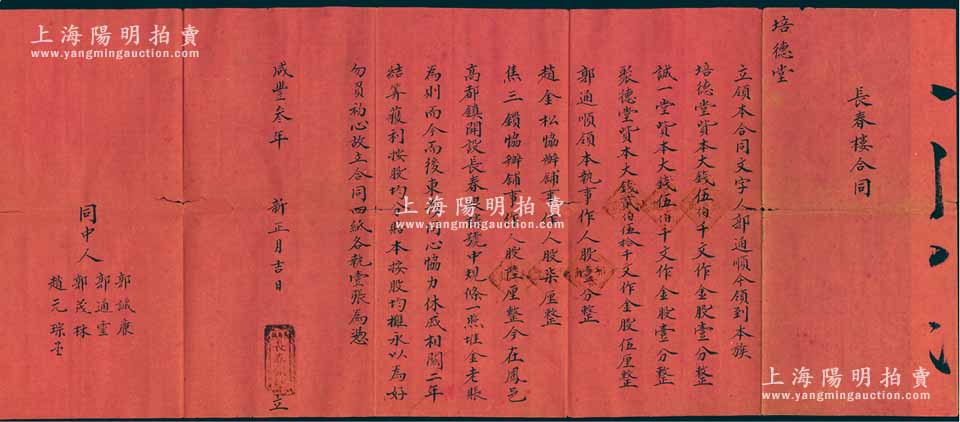 長春樓合同
培德堂
立領本合同文字人郭通順今領到本族
培德堂資本大錢伍伯千文作金股壹分整
誠一堂資本大錢伍伯千文作金股壹分整
聚德堂資本大錢貳伯伍拾千文作金股伍厘整
郭通順領本執事作人股壹分整
趙金松協辦鋪事作人股柒厘整
焦三鎖協辦鋪事作人股陸厘整今在鳳邑
高都鎮開設長春號中規條一照堆金老賬
為則而今而後東同心協力休戚相關二年
結算獲利按股均賠本按股均攤永以為好
勿員初心故立合同四紙各執壹張為憑
咸豐叁年 新正月吉日 立
同中人
郭誠廉
郭通雲
郭茂林
趙元琮
上海陽明拍賣
www.yangmingauction.com
上海陽明拍賣
www.yangmingauction.com
上海陽明拍賣
www.yangmingauction.com